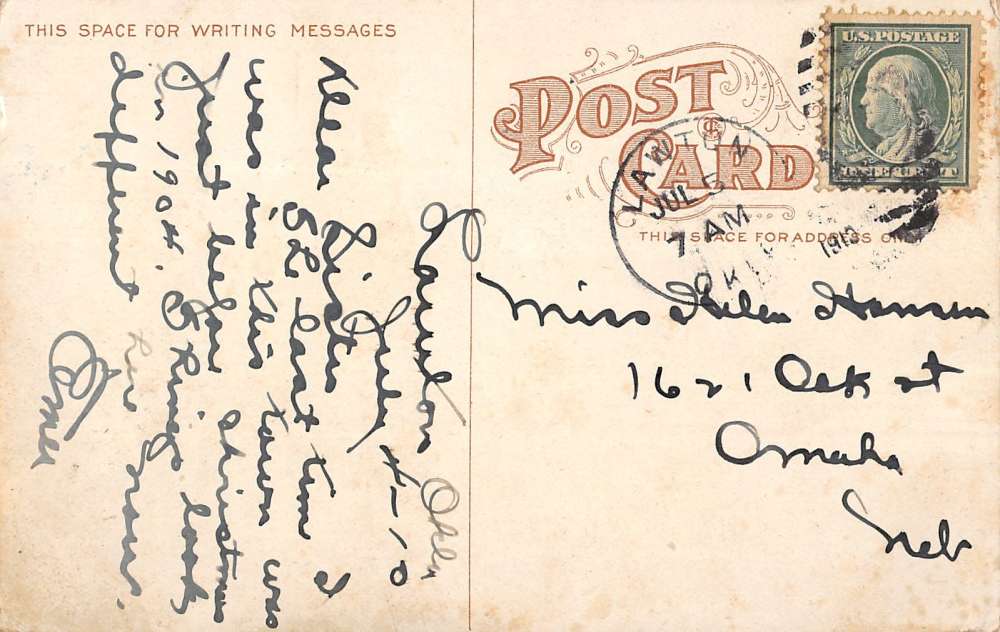 THIS SPACE FOR WRITING MESSAGES
Lawton Okla
July 4-10
Dear Sister
The last time I
was in this town was
just before christmas
in 1904. Things look
different here now.
Elmer
POST CARD
THIS SPACE FOR ADDRESS ONLY
U.S. POSTAGE
ONE CENT
LAWTON
JUL 5
7 AM
1910
OKLA
Miss Helen Hansen
1621 Oak st
Omaha
Neb